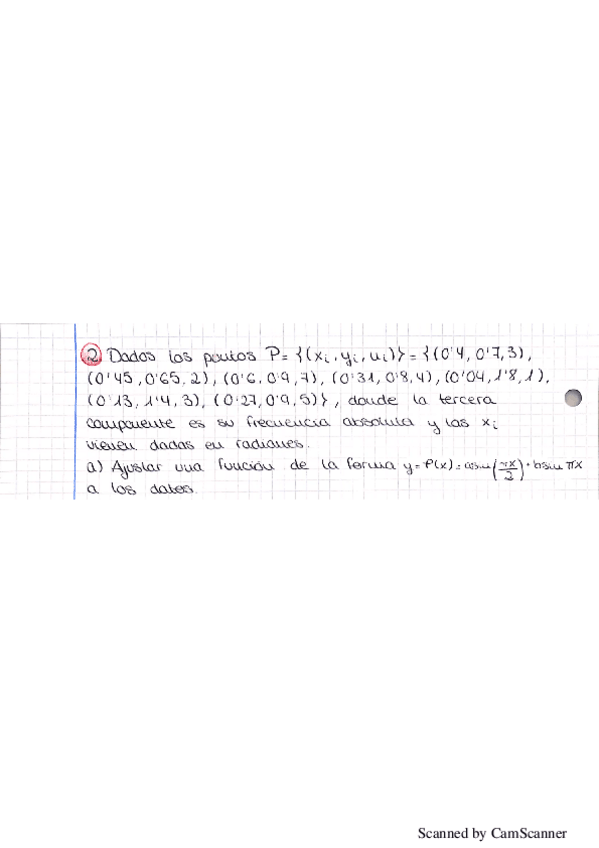 2 Dados los puntos P= {(xi, yi, ui)} = {(0'4, 0'7, 3),
(0'45, 0'65, 2), (0'6, 0'9, 7), (0'31, 0'8, 4), (0'04, 1'8, 1),
(0'13, 1'4, 3), (0'27, 0'9, 5)}, donde la tercera
componente es su frecuencia absoluta y las xi
vienen dadas en radianes.
a) Ajustar una función de la forma y= P(x) = asin(πx/2) + bsin πx
a los datos.
Scanned by CamScanner